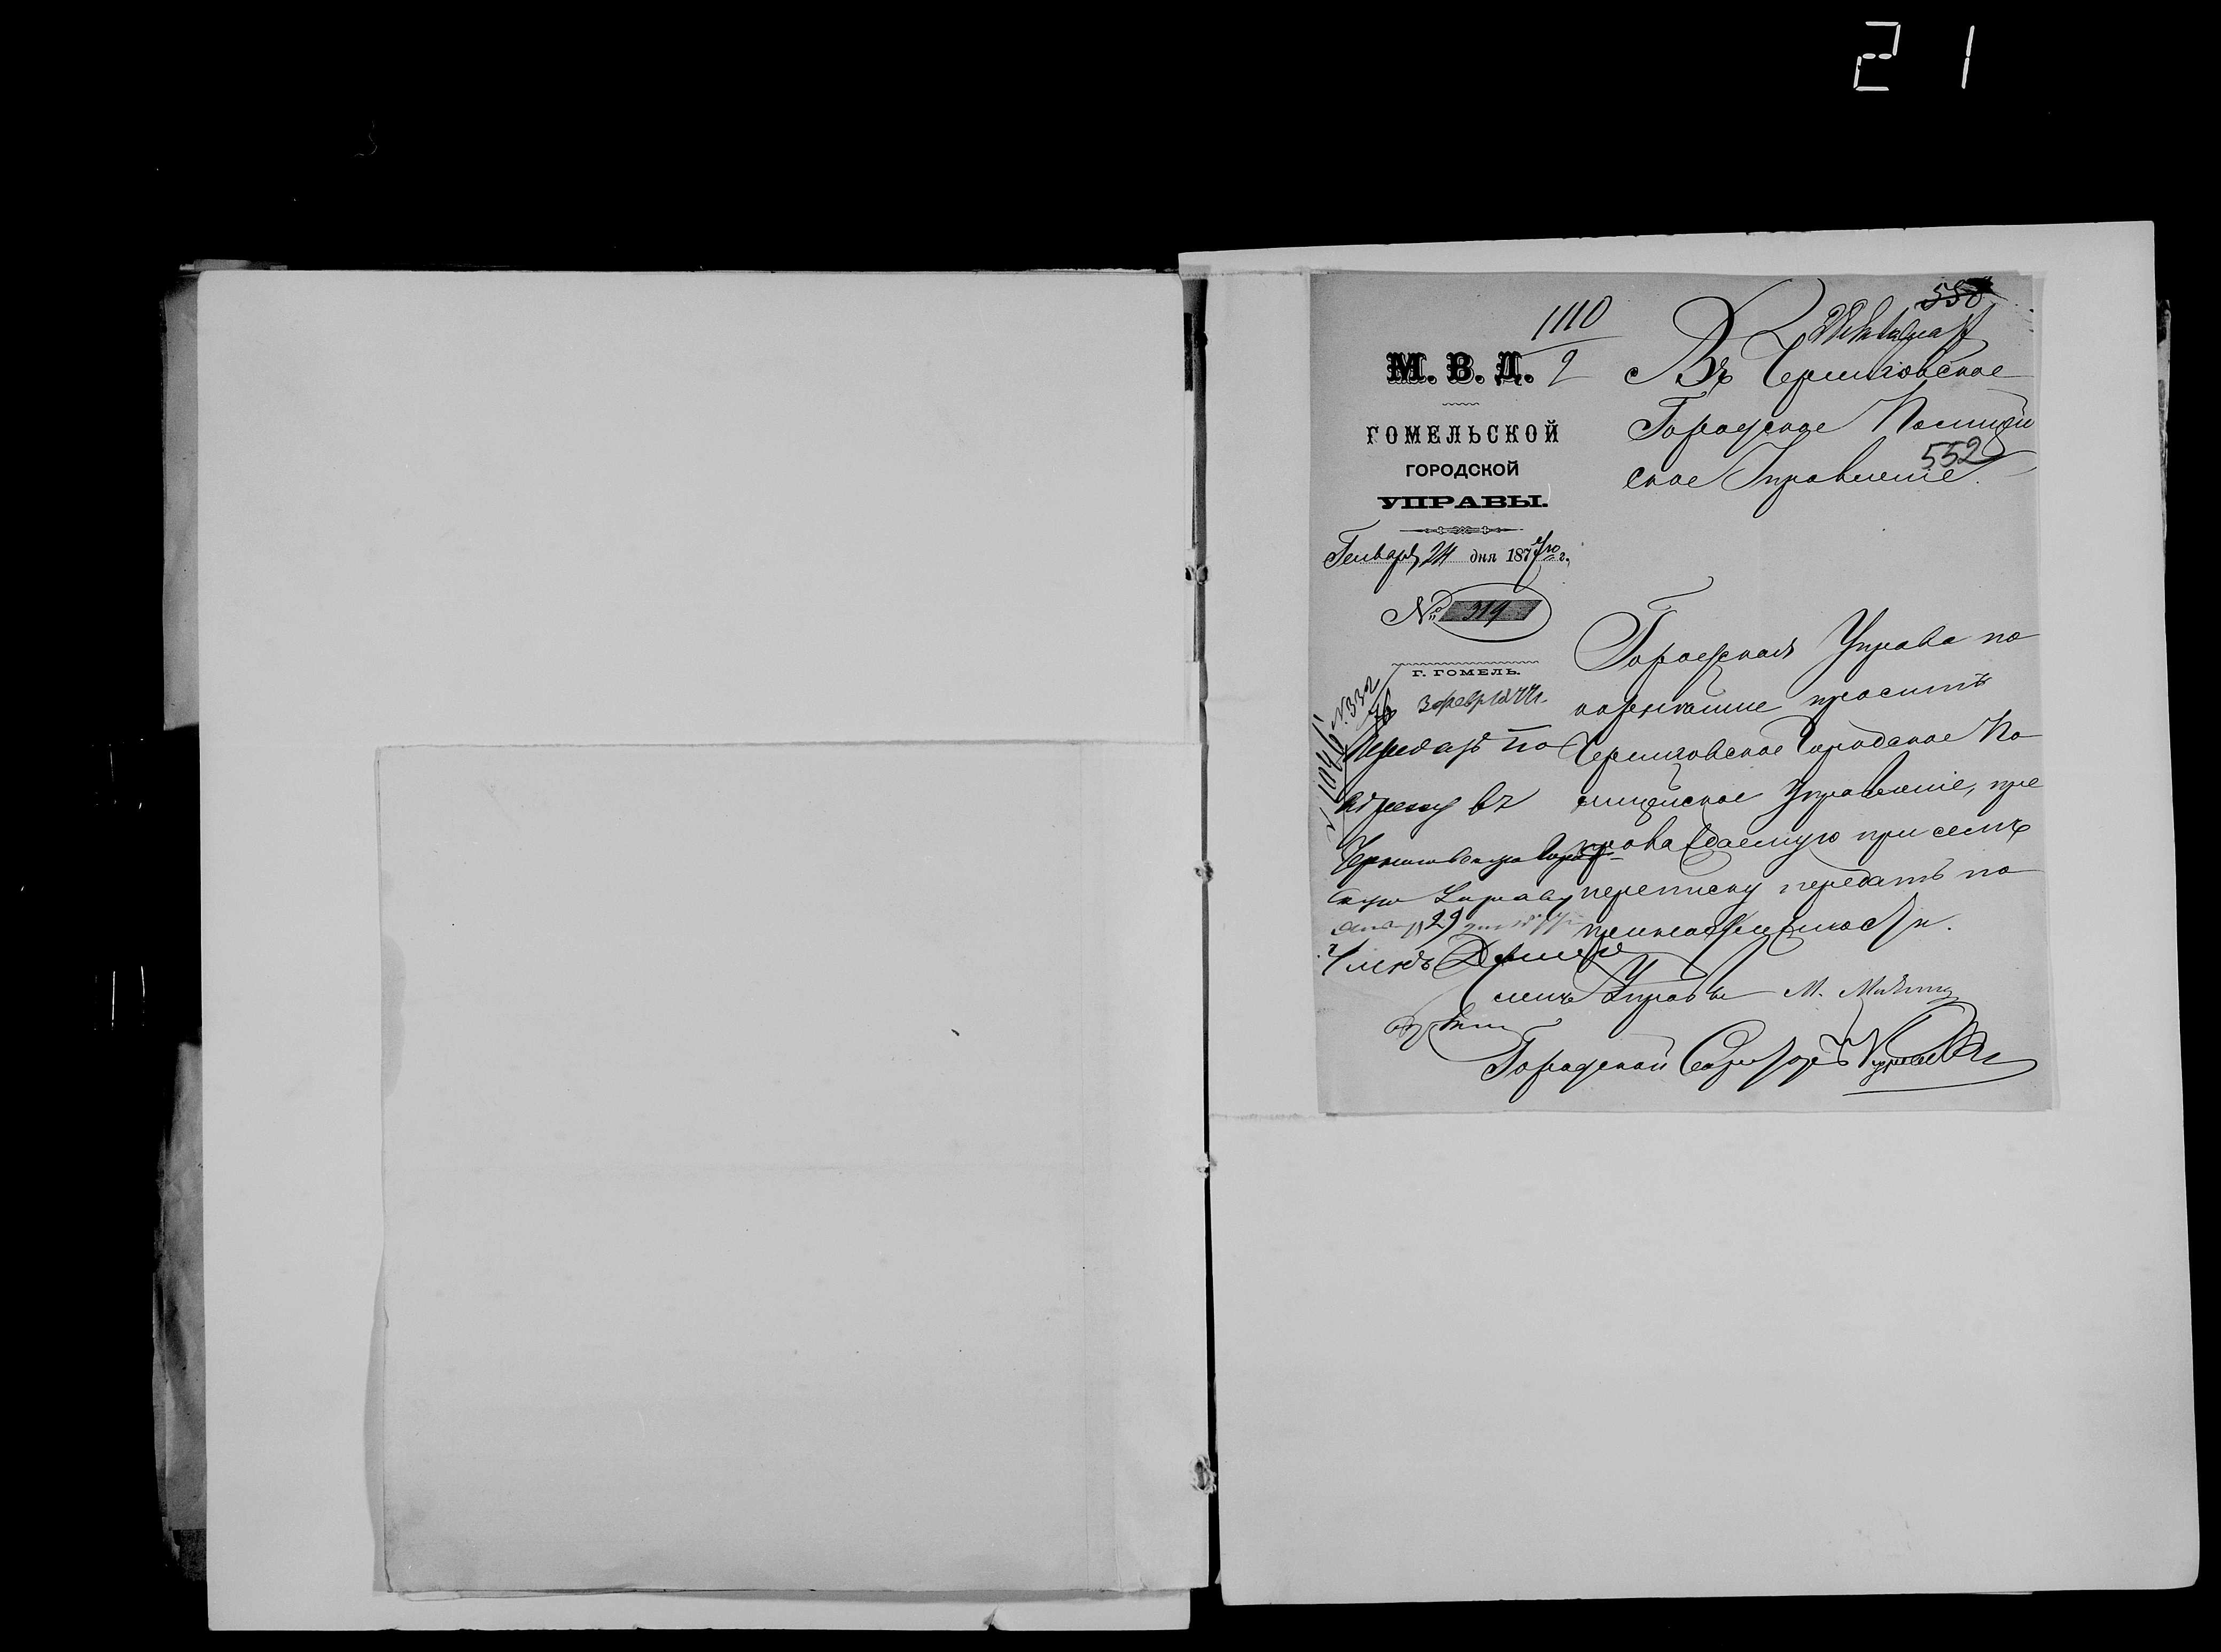 21
558
1110
2
М. В. Д.
ГОМЕЛЬСКОЙ
ГОРОДСКОЙ
УПРАВЫ.
Генваря 24 дня 1877го г.
№ 319
Г. ГОМЕЛЬ.
Въ Черниговское
Городское Полицей
ское Управленіе.
552
Городская Управа по
корнѣйше проситъ
Черниговское Городское По
лицейское Управленіе, пре
провождаемую при семъ
переписку передать по
принадлежности.
Членъ Управы М.
Городской Секретарь
№ 332
3 февр 1877 г.
Передать по
адресу въ
Черниговскую Город
скую Управу
29